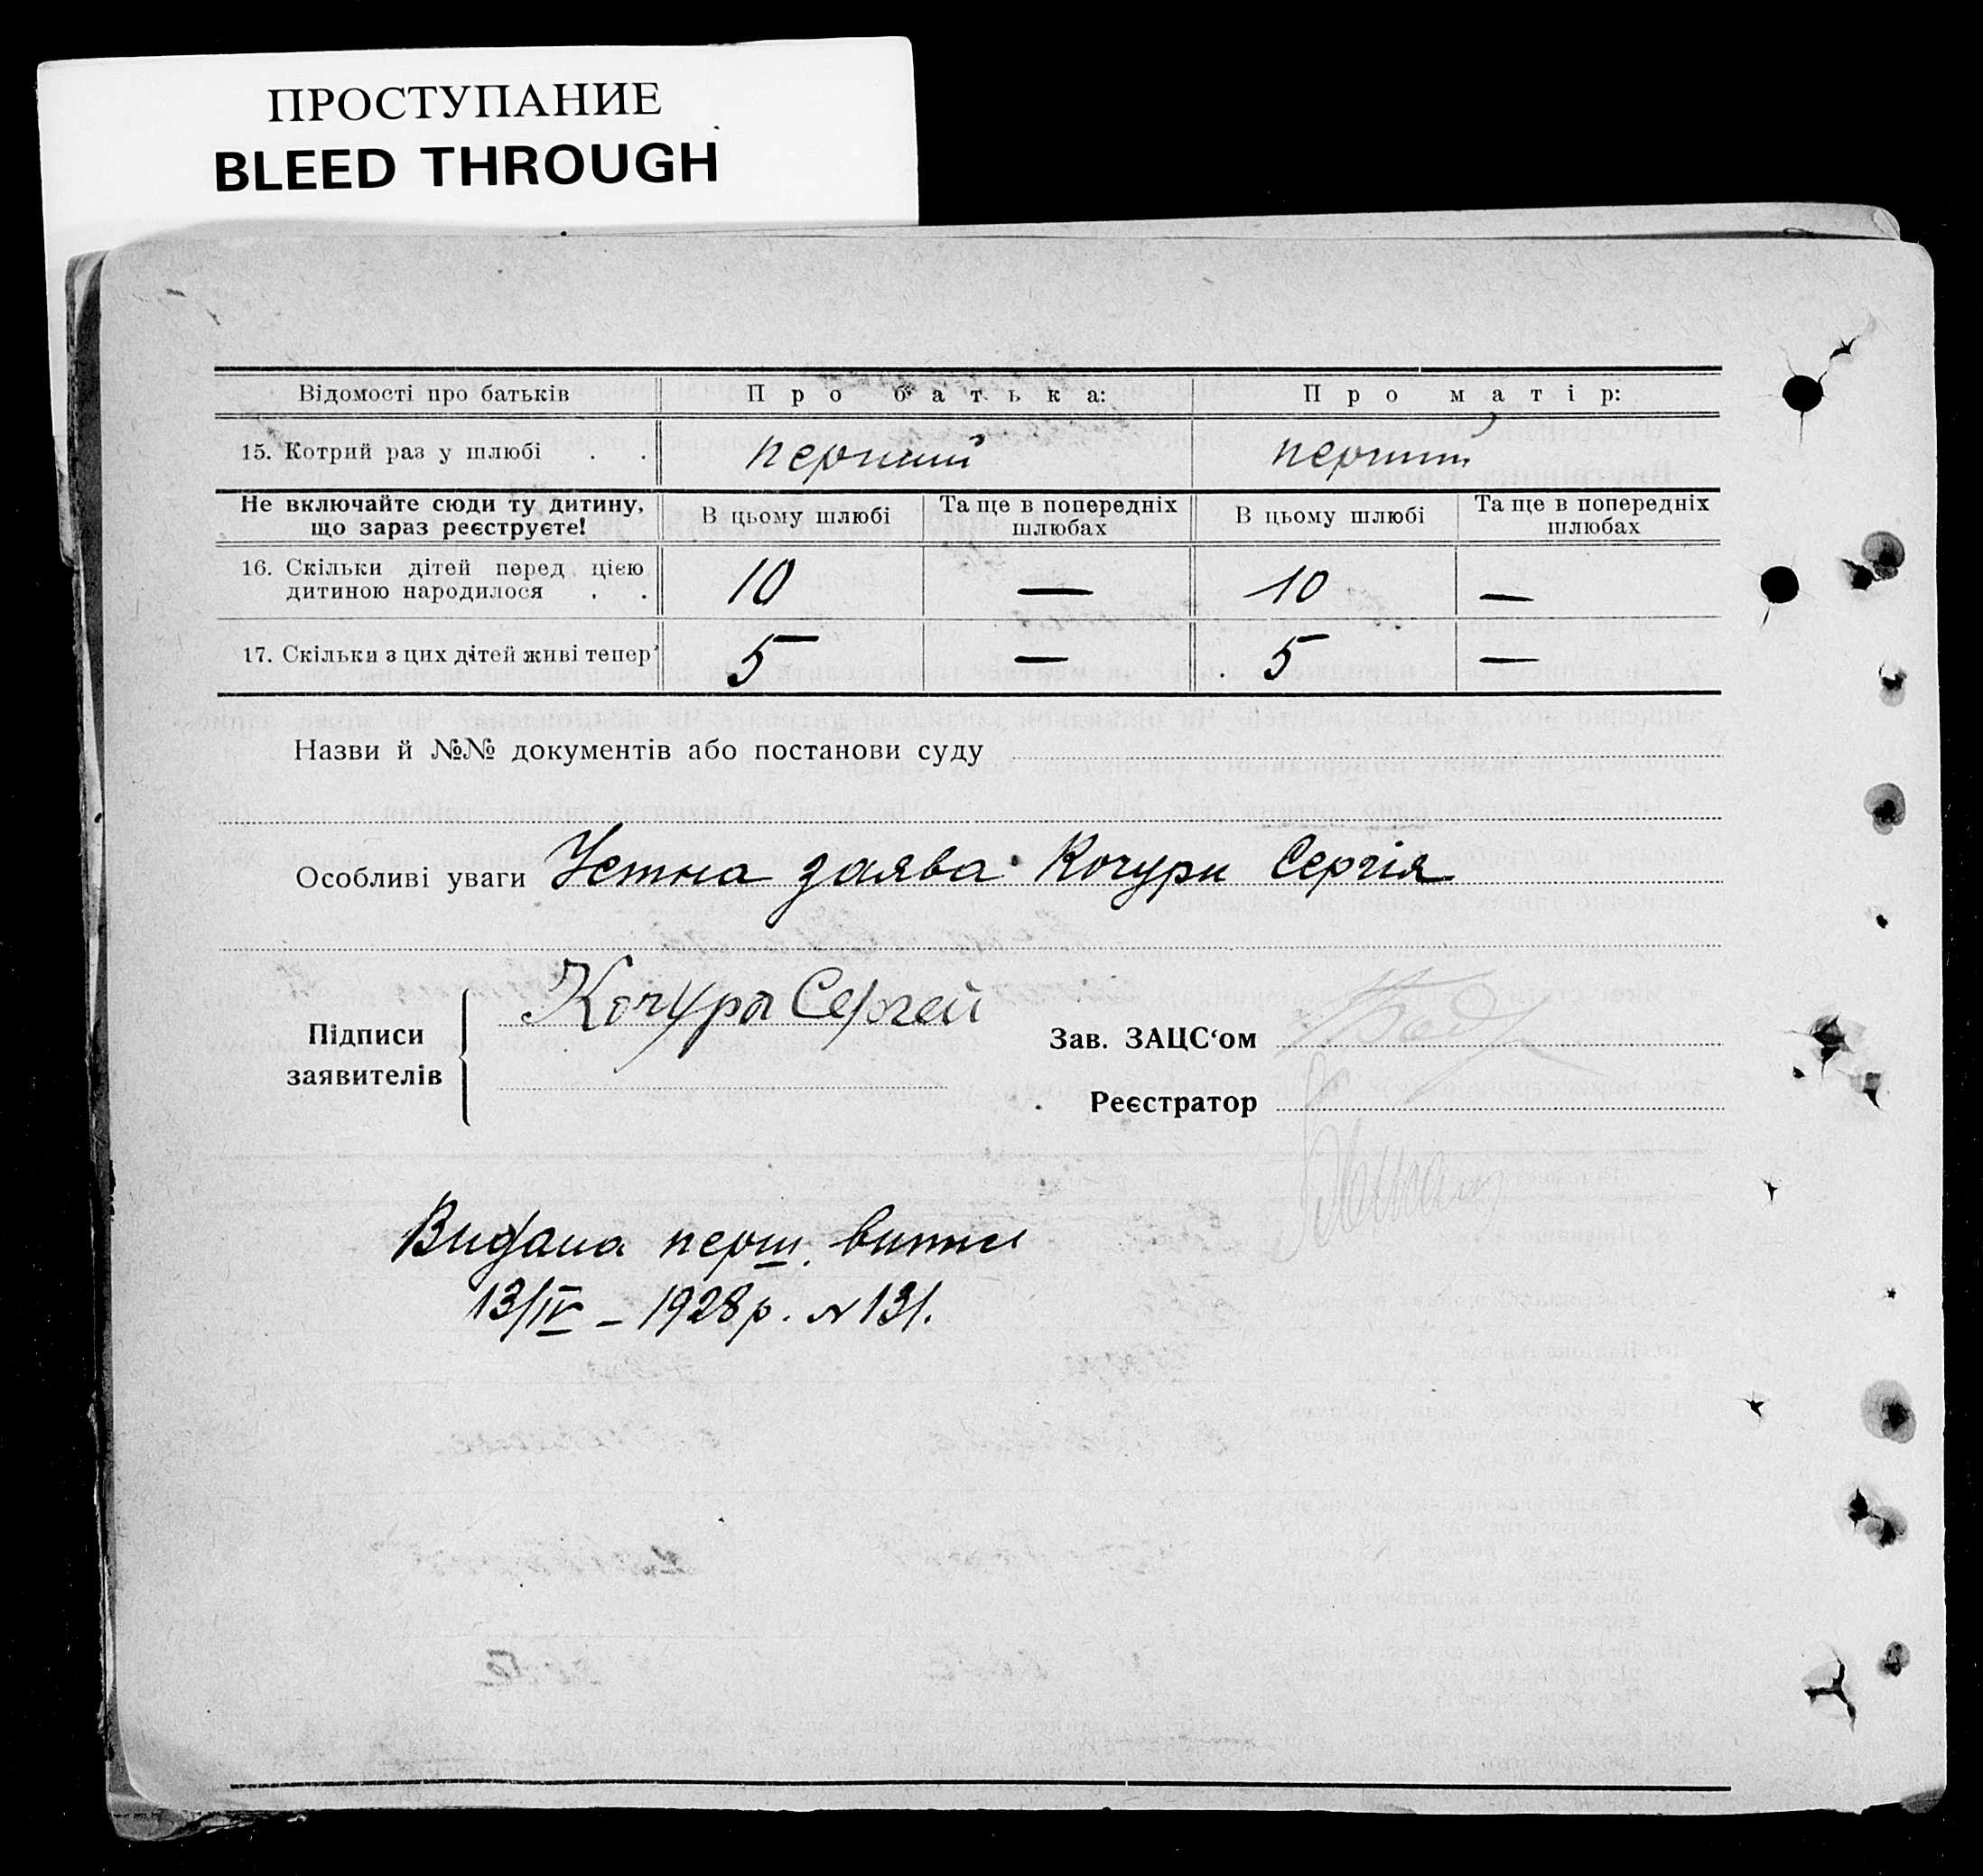 ПРОСТУПАНИЕ
BLEED THROUGH
Відомості про батьків Про батька: Про матір:
15. Котрий раз у шлюбі . . перший перший
Не включайте сюди ту дитину, що зараз реєструєте! В цьому шлюбі Та ще в попередніх шлюбах В цьому шлюбі Та ще в попередніх шлюбах
16. Скільки дітей перед цією дитиною народилося . . 10 — 10 —
17. Скільки з цих дітей живі тепер 5 — 5 —
Назви й №№ документів або постанови суду
Особливі уваги Устна заява Кочури Сергія
Підписи заявителів Кочура Сергей
Зав. ЗАЦС‘ом
Реєстратор
Видана перш. витис
13/IV – 1928 р. N 131.